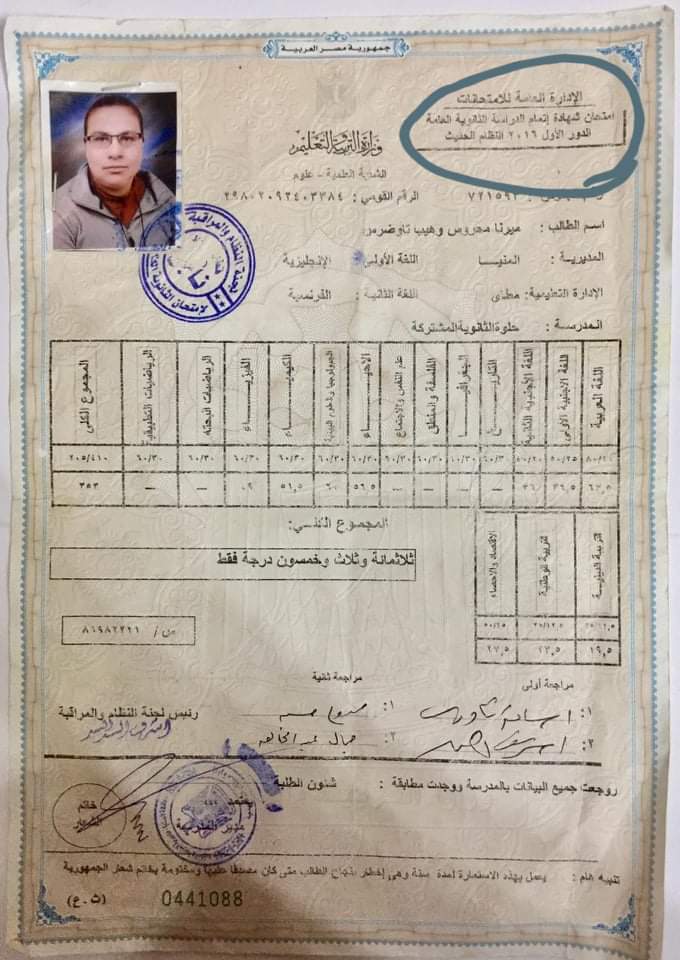 جمهورية مصر العربية
الإدارة العامة للامتحانات
امتحان شهادة إتمام الدراسة الثانوية العامة
الدور الأول ٢٠١٦ النظام الحديث
وزارة التربية والتعليم
الشعبة العلمية - علوم
٧٢١٥٩٢ الرقم القومي : ٢٩٨٠٢٠٩٢٤٠٣٣٨٤
اسم الطالب : ميرنا محروس وهيب تاوضروس
المديرية : المنيا اللغة الأولى : الإنجليزية
الإدارة التعليمية : مطاى اللغة الثانية : الفرنسية
المدرسة : حلوة الثانوية المشتركة
اللغة العربية اللغة الأجنبية الأولى اللغة الأجنبية الثانية التاريخ الجغرافيا الفلسفة والمنطق علم النفس والاجتماع الأحياء الجيولوجيا والعلوم البيئية الكيمياء الفيزياء الرياضيات البحته الرياضيات التطبيقية المجموع الكلى
٥٠/٢٥ ٦٠/٣٠ ٦٠/٣٠ ٦٠/٣٠ ٦٠/٣٠ ٦٠/٣٠ ٦٠/٣٠ ٦٠/٣٠ ٦٠/٣٠ ٢٠٥/٤١٠
٤٦,٥ — — — — ٥٦,٥ ٦٠ ٥١,٥ — — ٣٥٣
المجموع الكلي:
ثلاثمائة وثلاث وخمسون درجة فقط
التربية الدينية التربية الوطنية الاقتصاد والاحصاء
٢٥/١٢,٥ ٥٠/٢٥
١٩,٥ ٢٣,٥ ٢٧,٥
س / ٨٦٩٨٢٢٢١
مراجعة أولى مراجعة ثانية
رئيس لجنة النظام والمراقبة
١: ١:
٢: ٢:
روجعت جميع البيانات بالمدرسة ووجدت مطابقة : شئون الطلبة
يعتمد
مدير المدرسة
خاتم
الشعار
تنبيه هام : يعمل بهذه الاستمارة لمدة سنة وهى إخطار بنجاح الطالب متى كان مصدقا عليها ومختومة بخاتم شعار الجمهورية
0441088
(ث.ع)